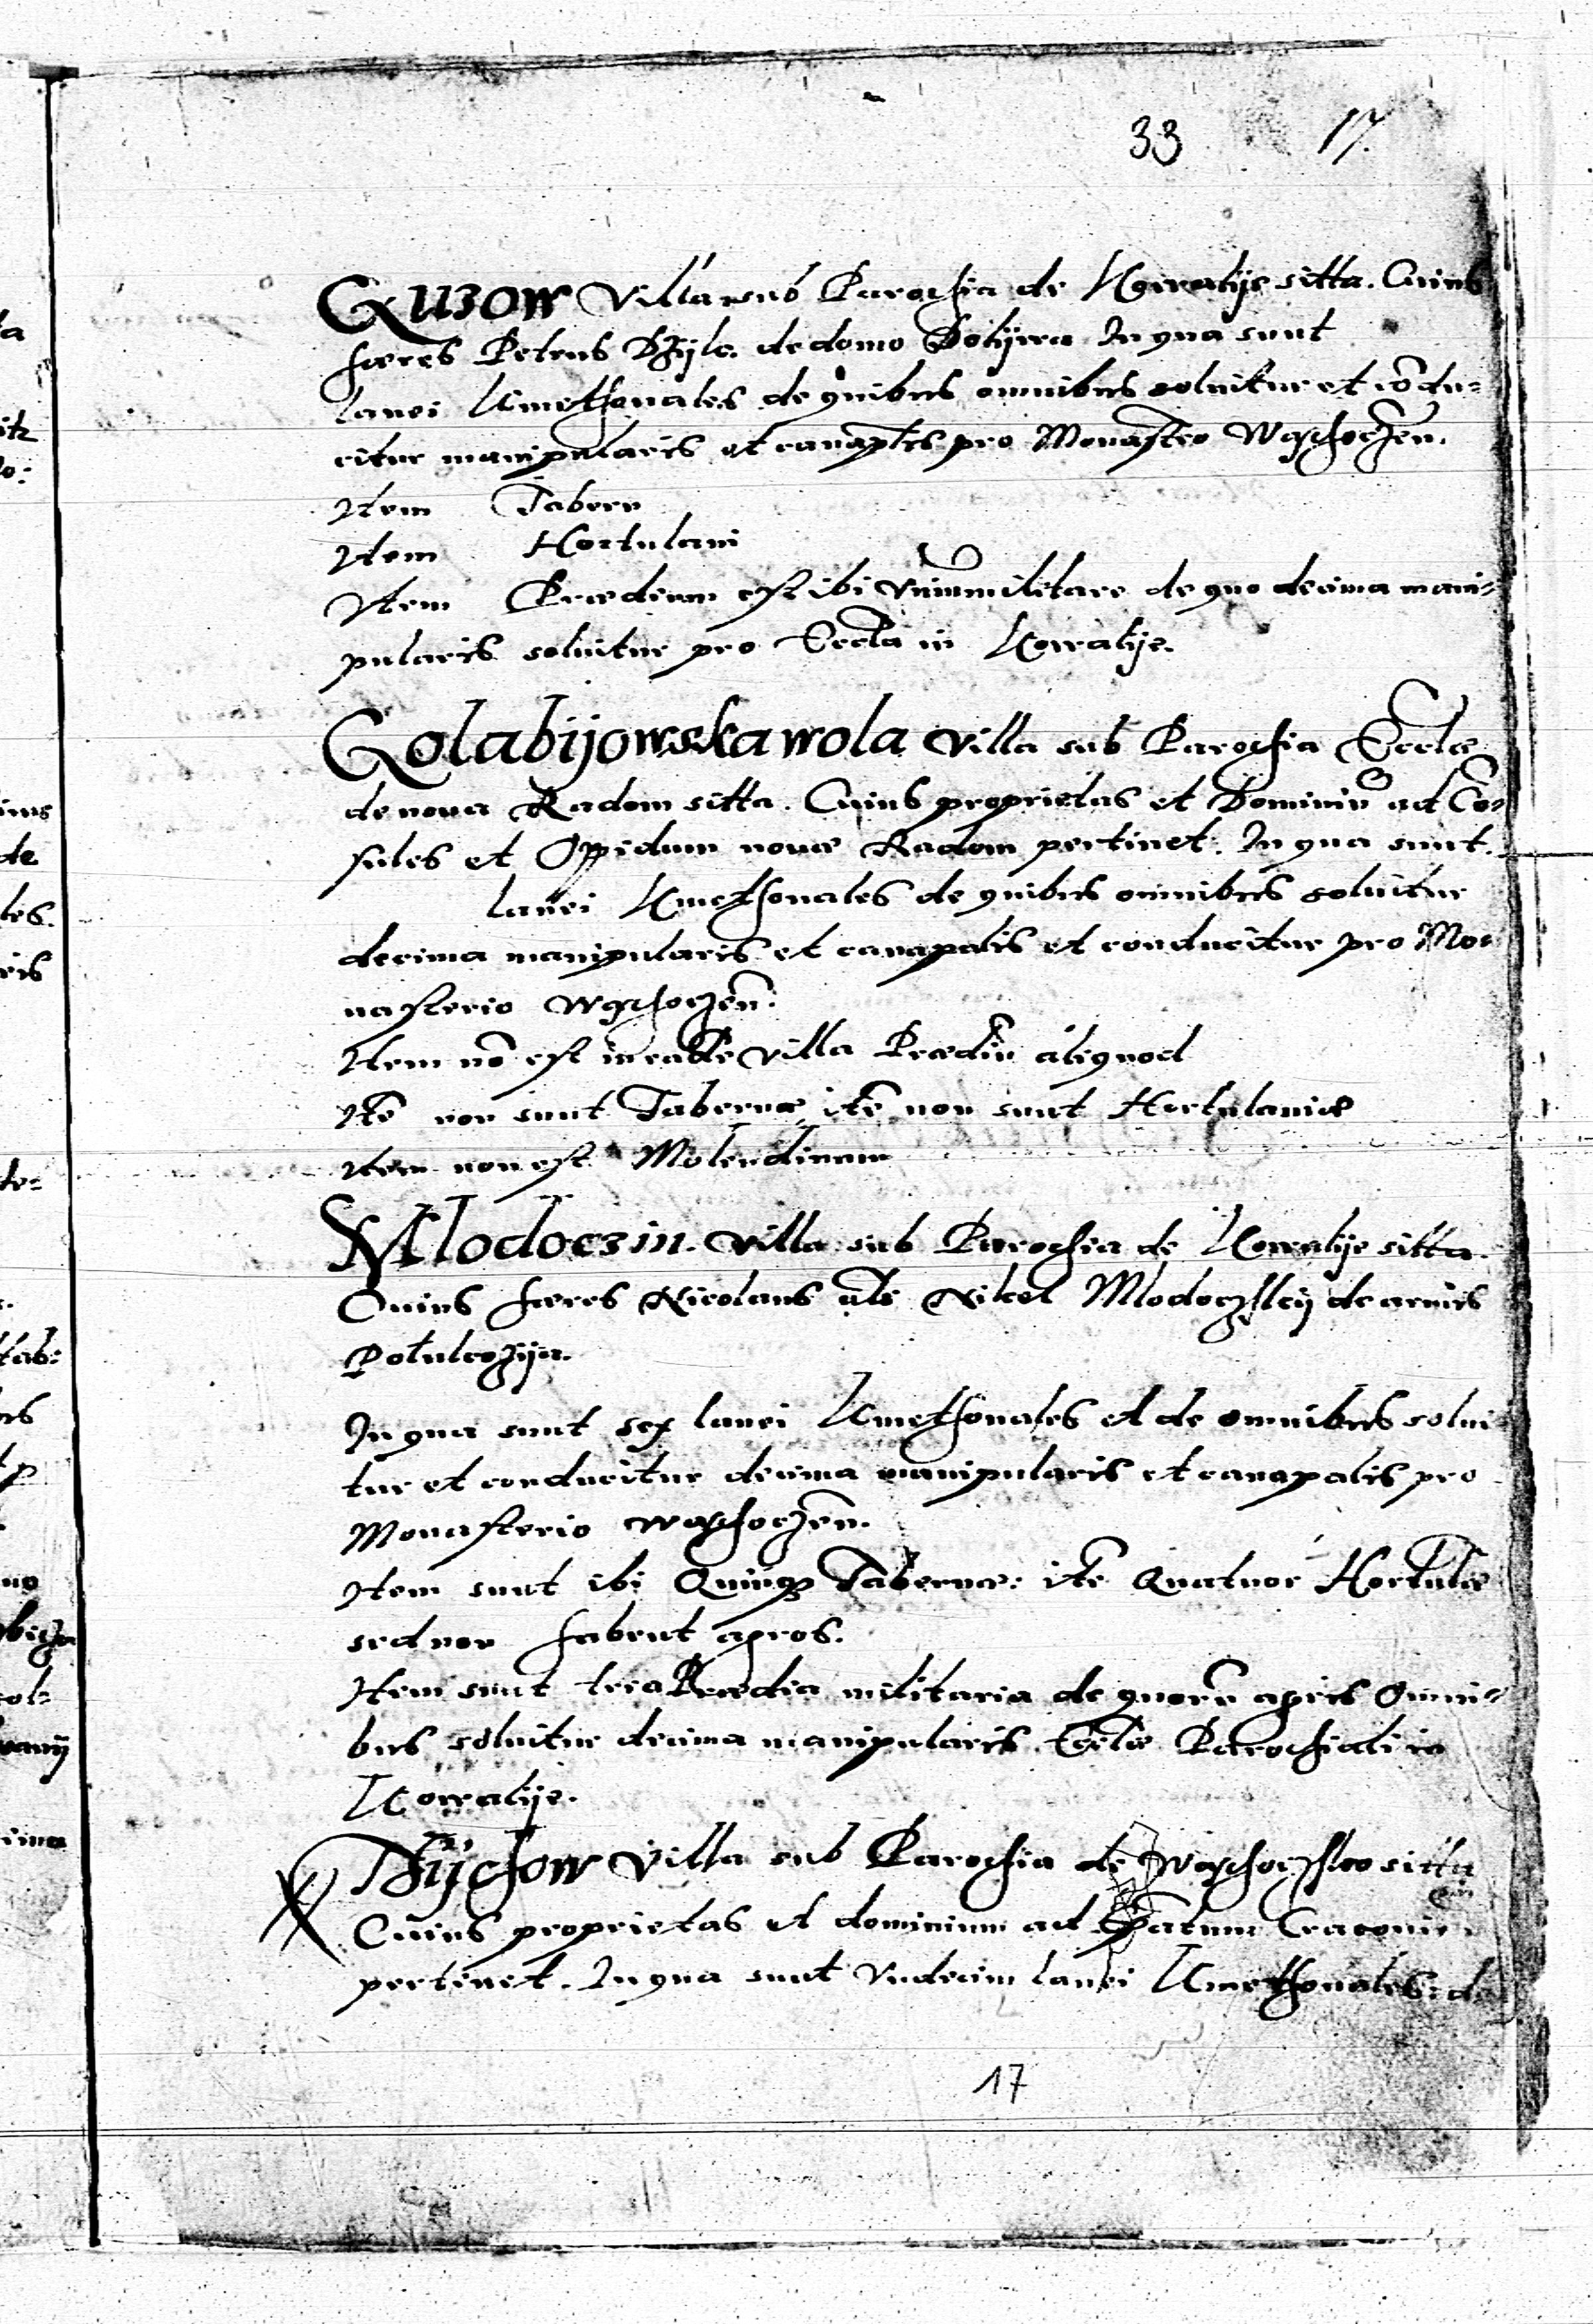 33 17.
Guzow Villa sub Parochia de Kowalije sitta. Cuius
haeres Petrus Dzijk. de domo Dolijwa In qua sunt
lanei Kmethonales de quibus omnibus soluitur et cōdu-
citur manipularis et canaplis pro Monastrō Wąchoczeñ.
Item Taberne
Item Hortulani
Item Praedium est ibi vnum militare de quo decima mani-
pularis soluitur pro Eccla in Kowalije.
Golabijowska wola villa sub Parochia Ecclae
de noua Radom sitta. Cuius proprietas et Dominiū ad Cō-
sules et Oppidum nouae Radom pertinet. In qua sunt
lanei Kmethonales de quibus omnibus soluitur
decima manipularis et canapalis et conducitur pro Mo-
nasterio Wąchoczeñ.
Item nō est in eadē villa Praediū aliquod
Itē non sunt Tabernae, itē non sunt Hortulaniae
Item non est Molendinum
Mlodoczin. villa sub Parochia de Kowalije sitta.
Cuius haeres Nicolaus als Nikel Mlodoczskij de armis
Potulczija.
In qua sunt sex lanei Kmethonales et de omnibus solui
tur et conducitur decima manipularis et canapalis pro
Monasterio Wąchoczeñ.
Item sunt ibi Quinqȝ Tabernae: itē Quatuor Hortulae
sed non habent agros.
Item sunt tria Praedia militaria de quorū agris omni-
bus soluitur decima manipularis Ecclae Parochiali in
Kowalije.
Dzijchow Villa sub Parochia de Wąchoczsko sitta
Cuius proprietas et dominium ad Epatum Cracouieñ
pertinet. In qua sunt Vndecim lanei Kmethonales: de
17